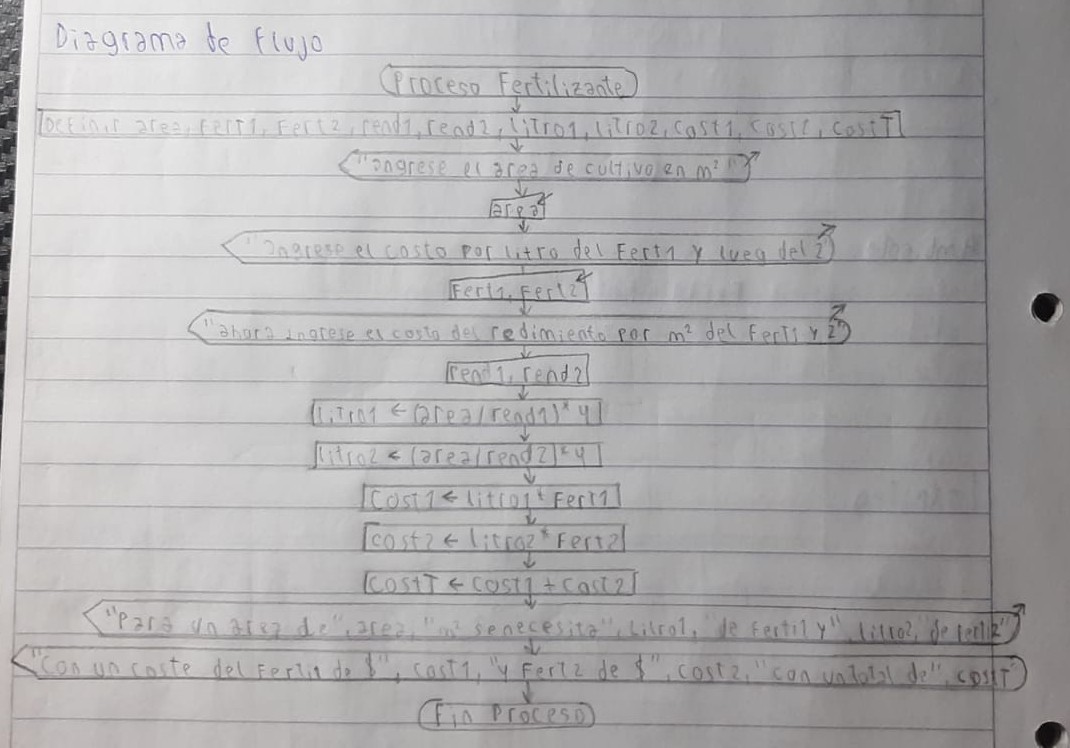 Diagrama de Flujo
Proceso Fertilizante
Definir area, Fert1, Fert2, rend1, rend2, Litro1, Litro2, Cost1, Cost2, CostT
"Ingrese el area de cultivo en m²"
area
"Ingrese el costo por litro del Fert1 y lueg del 2"
Fert1, Fert2
"ahora ingrese el costo del redimiento por m² del Fert1 y 2"
rend1, rend2
Litro1 ← (area/rend1)*4
Litro2 ← (area/rend2)*4
Cost1 ← Litro1*Fert1
Cost2 ← Litro2*Fert2
CostT ← Cost1 + Cost2
"Para un area de", area, "m² se necesita", Litro1, "de Fertil1 y", Litro2, "de Fert2"
"Con un coste del Fertil1 de $", cost1, "y Fert2 de $", cost2, "con un total de", costT
Fin Proceso